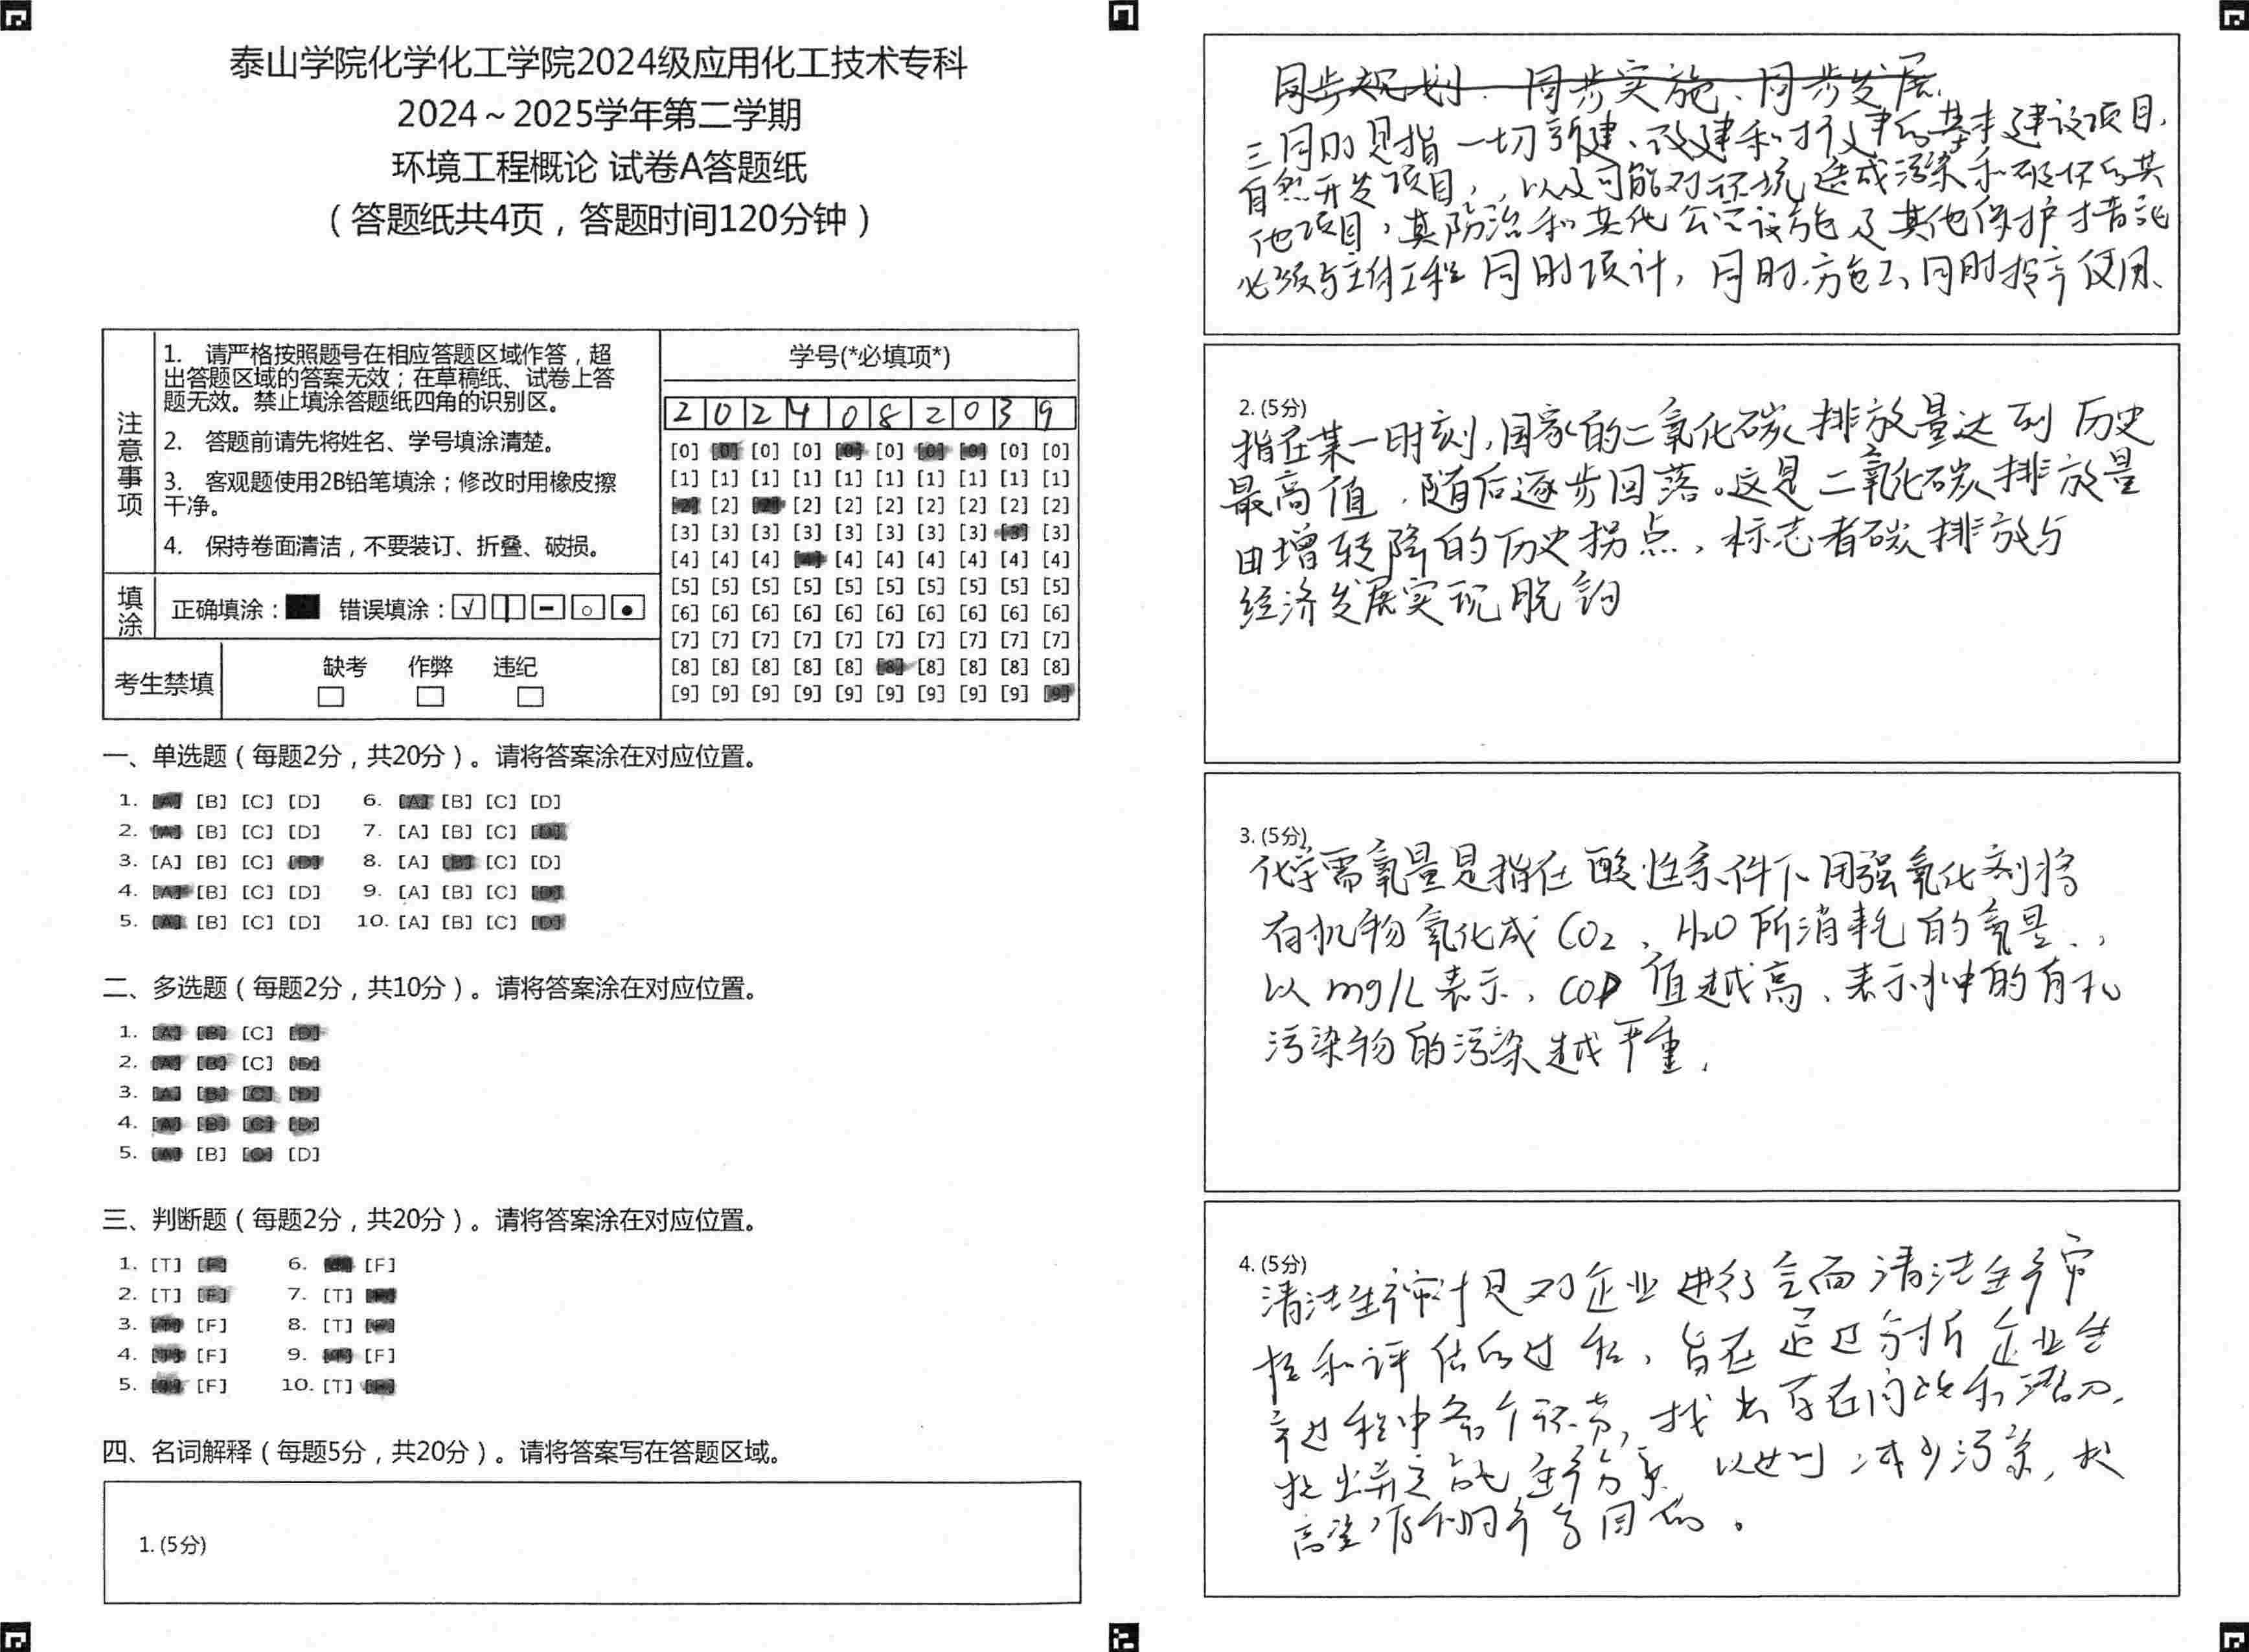 泰山学院化学化工学院2024级应用化工技术专科
2024～2025学年第二学期
环境工程概论 试卷A答题纸
（答题纸共4页，答题时间120分钟）
注意事项
1. 请严格按照题号在相应答题区域作答，超
出答题区域的答案无效；在草稿纸、试卷上答
题无效。禁止填涂答题纸四角的识别区。
2. 答题前请先将姓名、学号填涂清楚。
3. 客观题使用2B铅笔填涂；修改时用橡皮擦
干净。
4. 保持卷面清洁，不要装订、折叠、破损。
填涂
正确填涂： 错误填涂：
考生禁填
缺考 作弊 违纪
学号(*必填项*)
2 0 2 4 0 8 2 0 3 9
[0] [0] [0] [0] [0] [0] [0] [0] [0] [0]
[1] [1] [1] [1] [1] [1] [1] [1] [1] [1]
[2] [2] [2] [2] [2] [2] [2] [2] [2] [2]
[3] [3] [3] [3] [3] [3] [3] [3] [3] [3]
[4] [4] [4] [4] [4] [4] [4] [4] [4] [4]
[5] [5] [5] [5] [5] [5] [5] [5] [5] [5]
[6] [6] [6] [6] [6] [6] [6] [6] [6] [6]
[7] [7] [7] [7] [7] [7] [7] [7] [7] [7]
[8] [8] [8] [8] [8] [8] [8] [8] [8] [8]
[9] [9] [9] [9] [9] [9] [9] [9] [9] [9]
一、单选题（每题2分，共20分）。请将答案涂在对应位置。
1. [A] [B] [C] [D] 6. [A] [B] [C] [D]
2. [A] [B] [C] [D] 7. [A] [B] [C] [D]
3. [A] [B] [C] [D] 8. [A] [B] [C] [D]
4. [A] [B] [C] [D] 9. [A] [B] [C] [D]
5. [A] [B] [C] [D] 10. [A] [B] [C] [D]
二、多选题（每题2分，共10分）。请将答案涂在对应位置。
1. [A] [B] [C] [D]
2. [A] [B] [C] [D]
3. [A] [B] [C] [D]
4. [A] [B] [C] [D]
5. [A] [B] [C] [D]
三、判断题（每题2分，共20分）。请将答案涂在对应位置。
1. [T] [F] 6. [T] [F]
2. [T] [F] 7. [T] [F]
3. [T] [F] 8. [T] [F]
4. [T] [F] 9. [T] [F]
5. [T] [F] 10. [T] [F]
四、名词解释（每题5分，共20分）。请将答案写在答题区域。
1. (5分)
同步规划、同步实施、同步发展、
三同时是指一切新建、改建和扩建的基本建设项目，
自然开发项目，以及可能对环境造成污染和破坏的其
他项目，其防治和其他公害设施及其他保护措施
必须与主体工程同时设计，同时施工、同时投产使用、
2. (5分)
指在某一时刻，国家的二氧化碳排放量达到历史
最高值，随后逐步回落。这是二氧化碳排放量
由增转降的历史拐点，标志着碳排放与
经济发展实现脱钩
3. (5分)
化学需氧量是指在酸性条件下用强氧化剂将
有机物氧化成CO2、H2O所消耗的氧量、，
以mg/L表示，COD值越高、表示水中的有机
污染物的污染越严重，
4. (5分)
清洁生产审计是对企业进行全面清洁生产审
核和评估的过程，旨在通过分析企业生
产过程中各个环节，找出存在问题和潜力，
提出并定 生产方案 以达到减少污染，提
高资源利用率等目的。